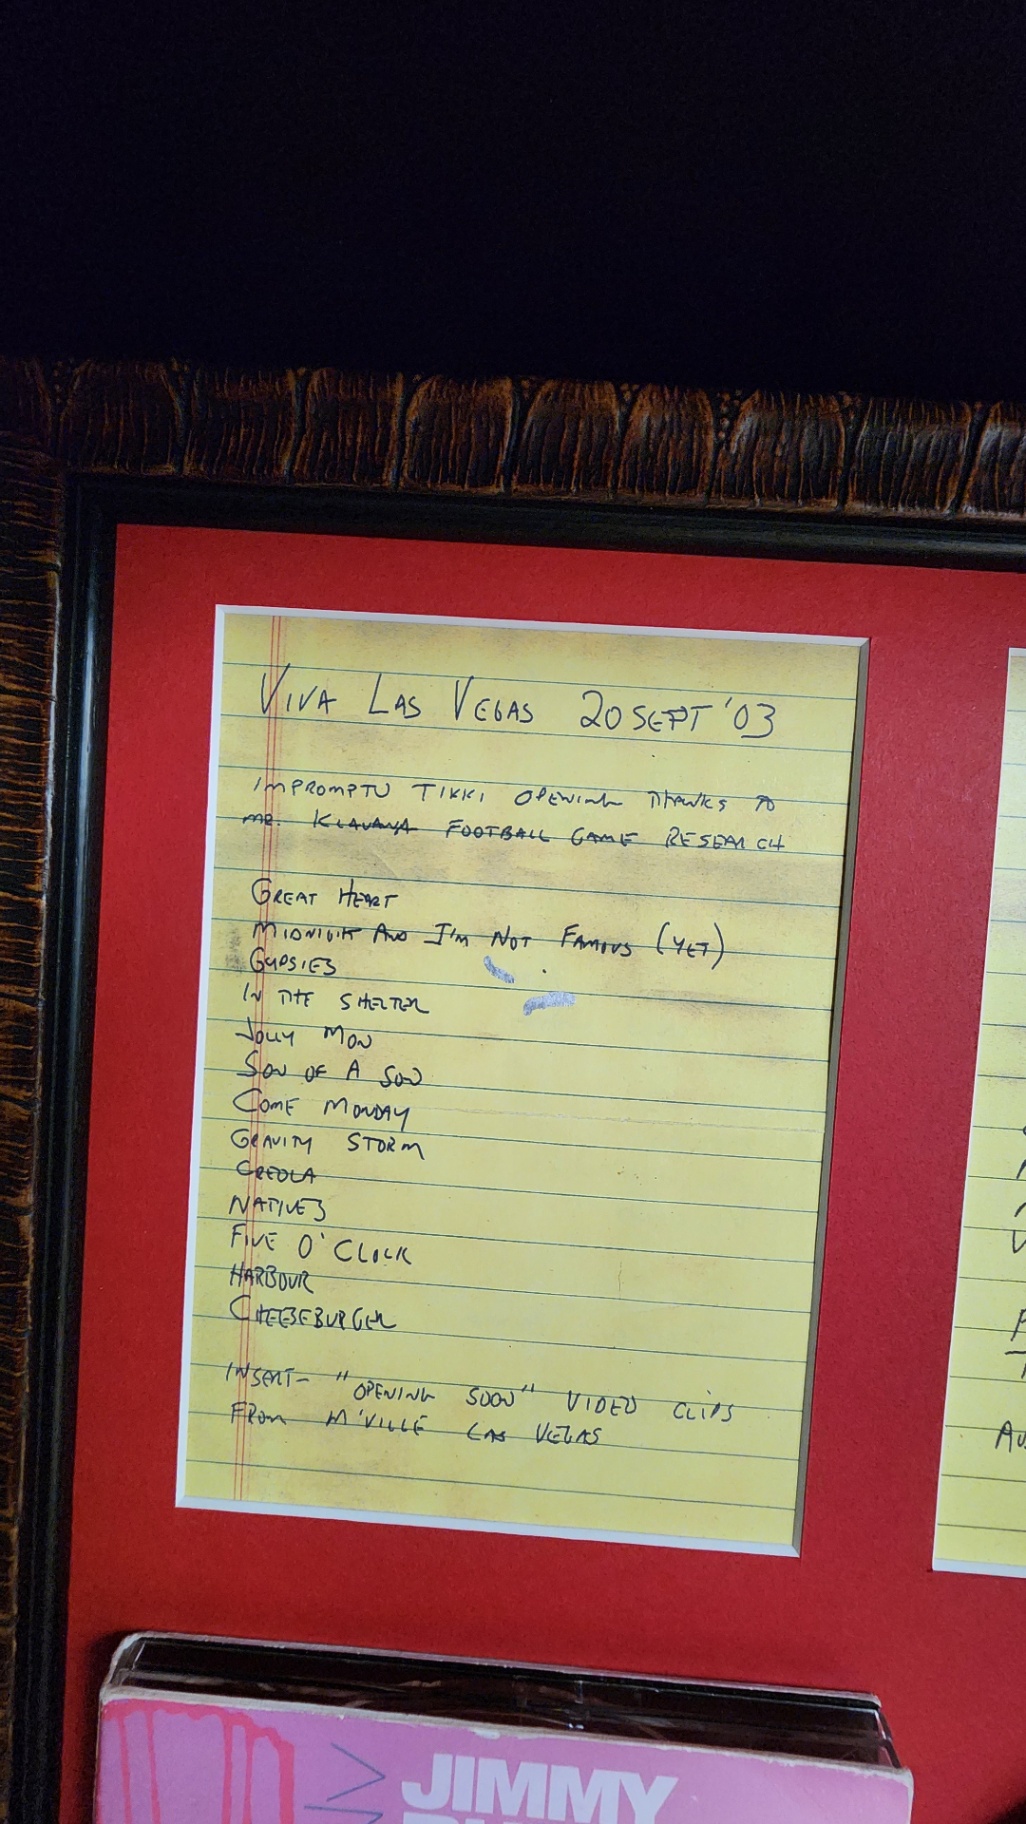 VIVA LAS VEGAS 20 SEPT '03
IMPROMPTU TIKKI OPENING THANKS TO
MR. FOOTBALL GAME RESEARCH
GREAT HEART
MIDNIGHT AND I'M NOT FAMOUS (YET)
GYPSIES
IN THE SHELTER
JOLLY MON
SON OF A SON
COME MONDAY
GRAVITY STORM
CREOLA
NATIVES
FIVE O'CLOCK
HARBOUR
CHEESEBURGER
INSERT- "OPENING SOON" VIDEO CLIPS
FROM M'VILLE LAS VEGAS
JIMMY